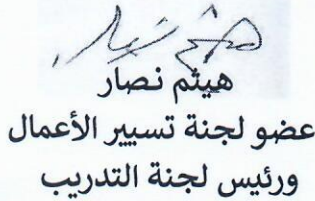 هيثم نصار
هيثم نصار
عضو لجنة تسيير الأعمال
ورئيس لجنة التدريب